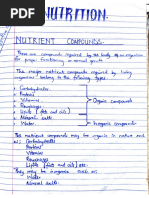 NUTRITION.
NUTRIENT COMPOUNDS
These are compounds required by the body of an organism
for proper functioning or normal growth.
The major nutrient compounds required by living
organisms belong to the following types:
Carbohydrates
Proteins
Vitamins
Roughages
Lipids (fats and oils)
Mineral salts
Water
Organic compounds
Inorganic compounds
The nutrient compounds may be organic in nature and
Carbohydrates
Proteins
Vitamins
Roughages
Lipids (fats and oils) etc.
They may be inorganic such as:
Water
Mineral salts.